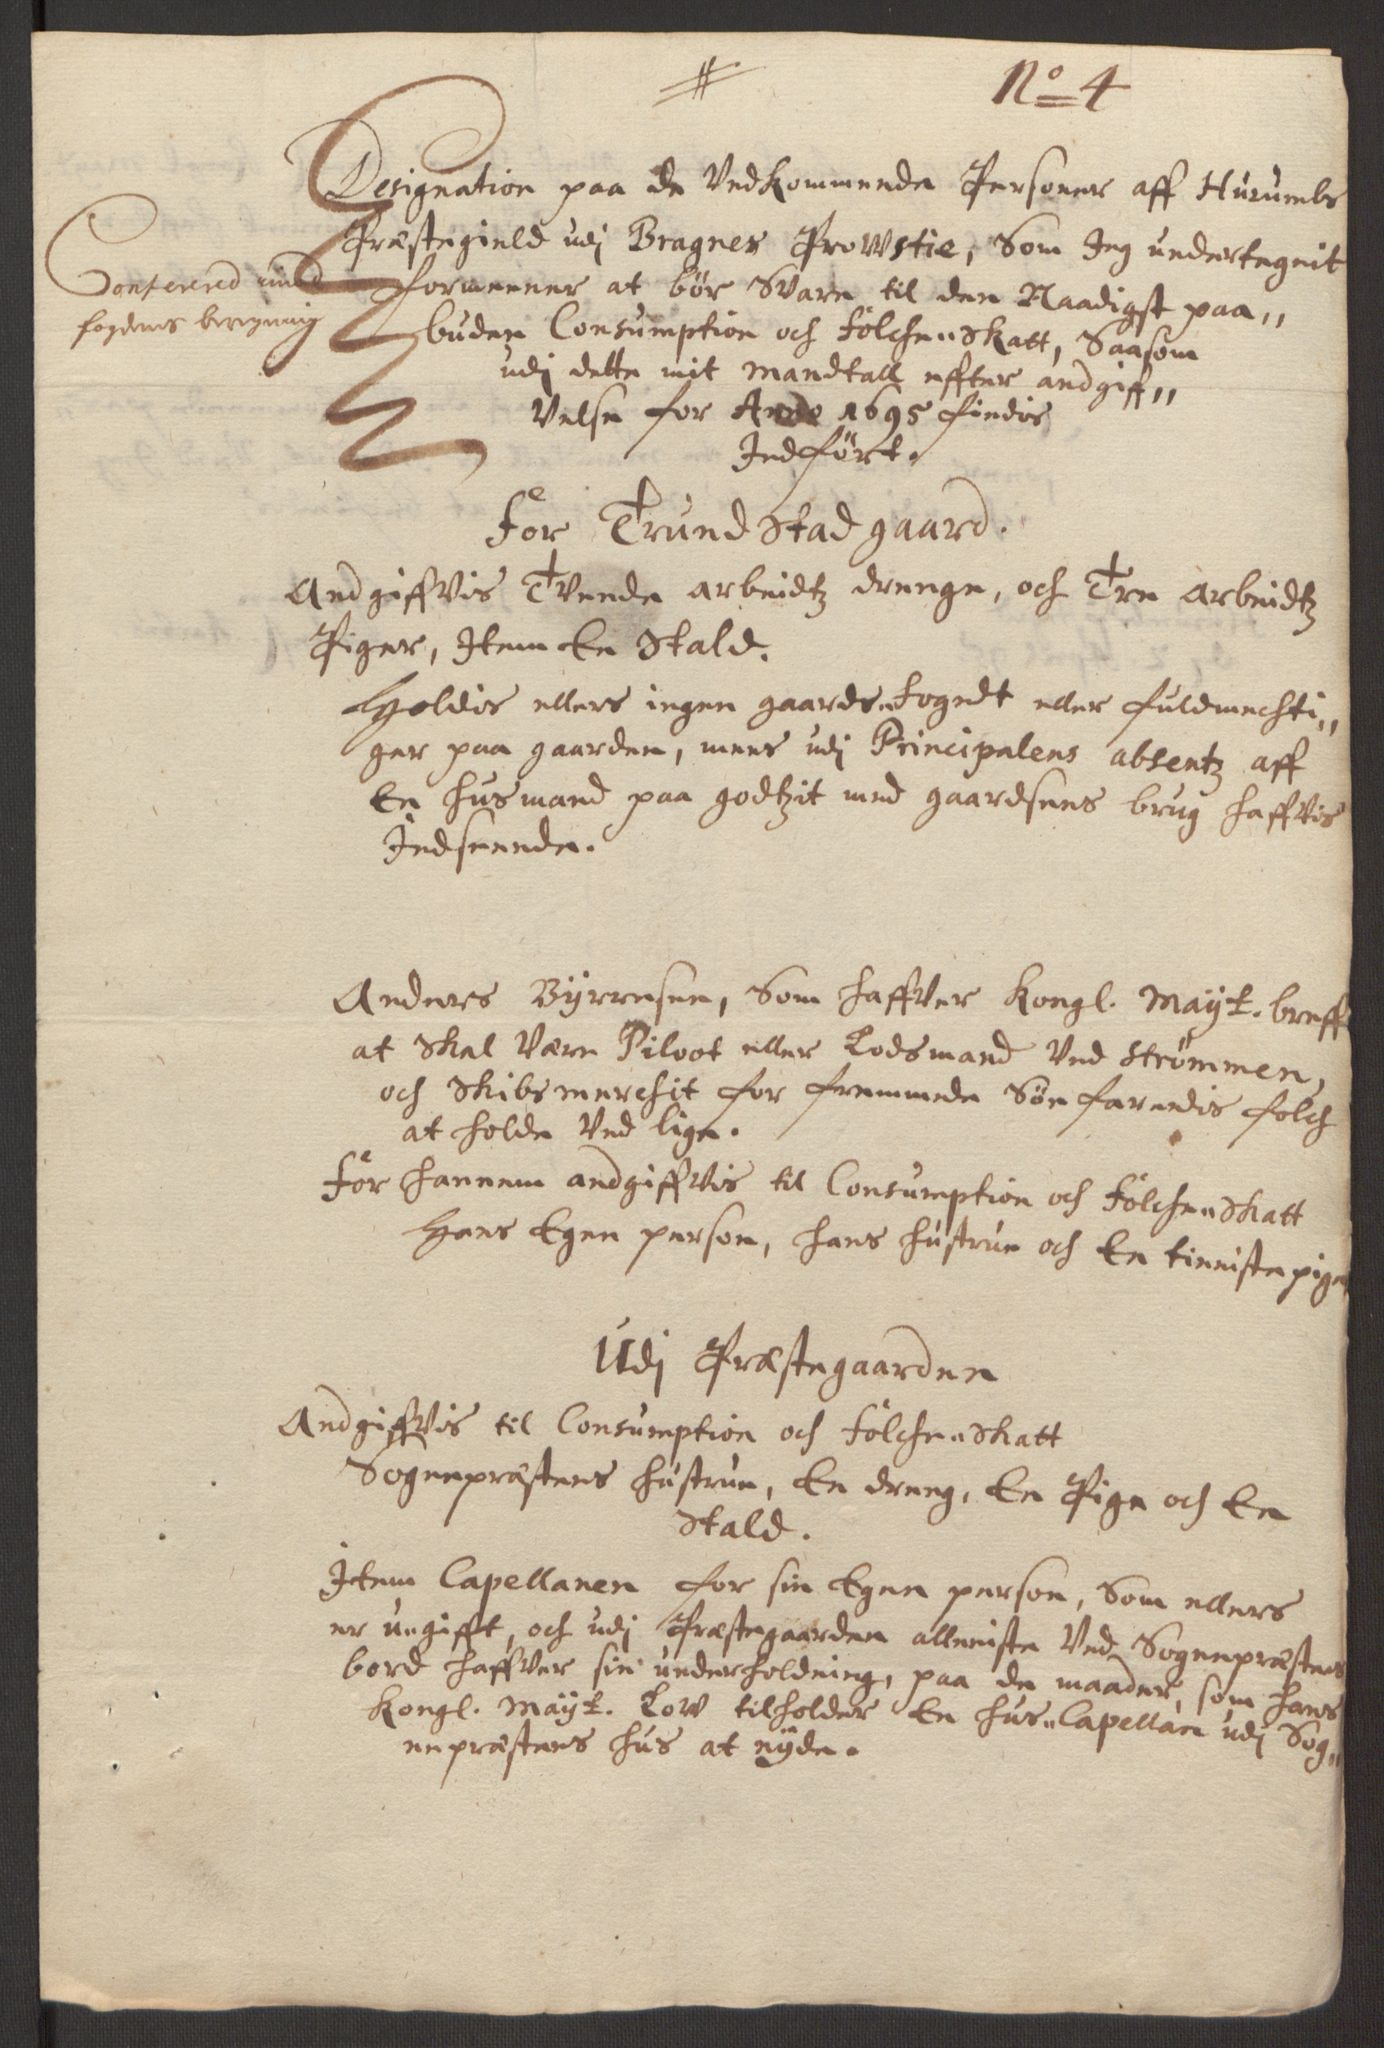 #
No 4
Designation paa de Vedkommende Personer aff Hurumbs
Præstegield udj Bragnes Prowstie, Som Jeg undertegnit
formeener at bör Svare til den Naadigst paa„
buden Consumption och Folche„Skatt, Saasom
udj dette mit mandtall effter andgiff„
Velse for Anno 1695 findis
Indfört.
Confererred med
fogdens beregning
For Trundstad gaard.
Andgiffvis Tvende arbeidtz drenge, och Tre arbeidtz
Piger, Item En Stald.
Holdis ellers ingen gaards„Fogedt eller fuldmechti„
ger paa gaarden, mens udj Principalens absentz aff
En husmand paa godtzit med gaardsens brug haffvis
Indseende.
Anders Byrresen, Som haffver Kongl. Mayt. breff
at Skal Være Piloot eller Lodsmand Ved Strömmen,
och Skibsmerchit for fremmede Söe farendis folch
at holde Ved lige.
For hannem andgiffvis til Consumption och Folche„Skatt
Hans Egen person, hans hustrue och En tieniste pige
Udj Præstegaarden
Andgiffvis til Consumption och Folche„Skatt
Sognepræstens hustrue, En dreng, En Pige och En
Stald.
Item Capellanen for sin Egen person, Som ellers
er ungifft, och udj Præstegaarden alleniste Ved Sognepræstens
bord haffver sin underholdning, paa de maader, som hans
Kongl. Mayt. Low tilholder En hus„Capellan udj Sog„
nepræstens hus at nyde.